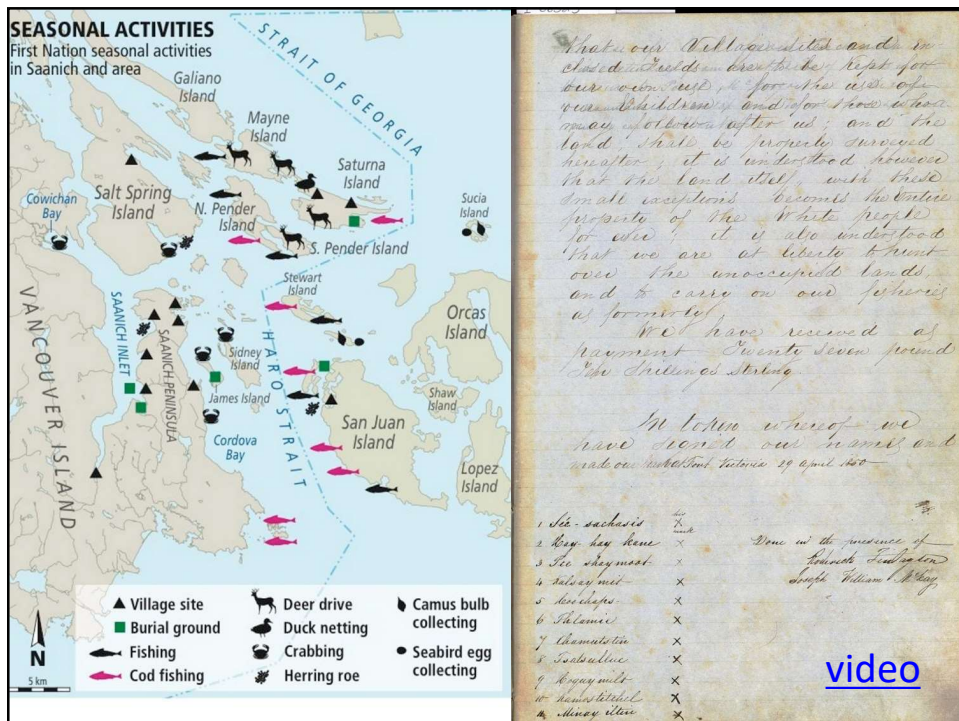 SEASONAL ACTIVITIES
First Nation seasonal activities
in Saanich and area
STRAIT OF GEORGIA
Galiano
Island
Mayne
Island
Saturna
Island
Salt Spring
Island
Cowichan
Bay
N. Pender
Island
S. Pender Island
Sucia
Island
Stewart
Island
Orcas
Island
VANCOUVER ISLAND
SAANICH INLET
SAANICH PENINSULA
HARO STRAIT
Sidney
Island
James Island
Shaw
Island
San Juan
Island
Cordova
Bay
Lopez
Island
Village site
Burial ground
Fishing
Cod fishing
Deer drive
Duck netting
Crabbing
Herring roe
Camus bulb
collecting
Seabird egg
collecting
N
5 km
that our Village sites and en-
closed Fields are to be kept for
our own use, for the use of
our Children, and for those who
may follow after us; and the
land, shall be properly surveyed
hereafter; it is understood however
that the land itself, with these
small exceptions becomes the Entire
property of the White people
for ever; it is also understood
that we are at liberty to hunt
over the unoccupied lands,
and to carry on our fisheries
as formerly.
We have received as
payment Twenty seven pound
Ten Shillings Sterling.
In token whereof we
have signed our names and
made our Fort Victoria 29 April 1850
his
1 See-sachasis X
mark
2 Hay-hay kane X
3 Pee shaymoot X
4 Kalsaymit X
5 Coochaps X
6 Thlamie X
7 Chamutstin X
8 Tsatsulluc X
9 Hoquymilt X
10 Kamostitchel X
11 Minay iltin X
Done in the presence of
Roderick Finlayson
Joseph William McKay
video